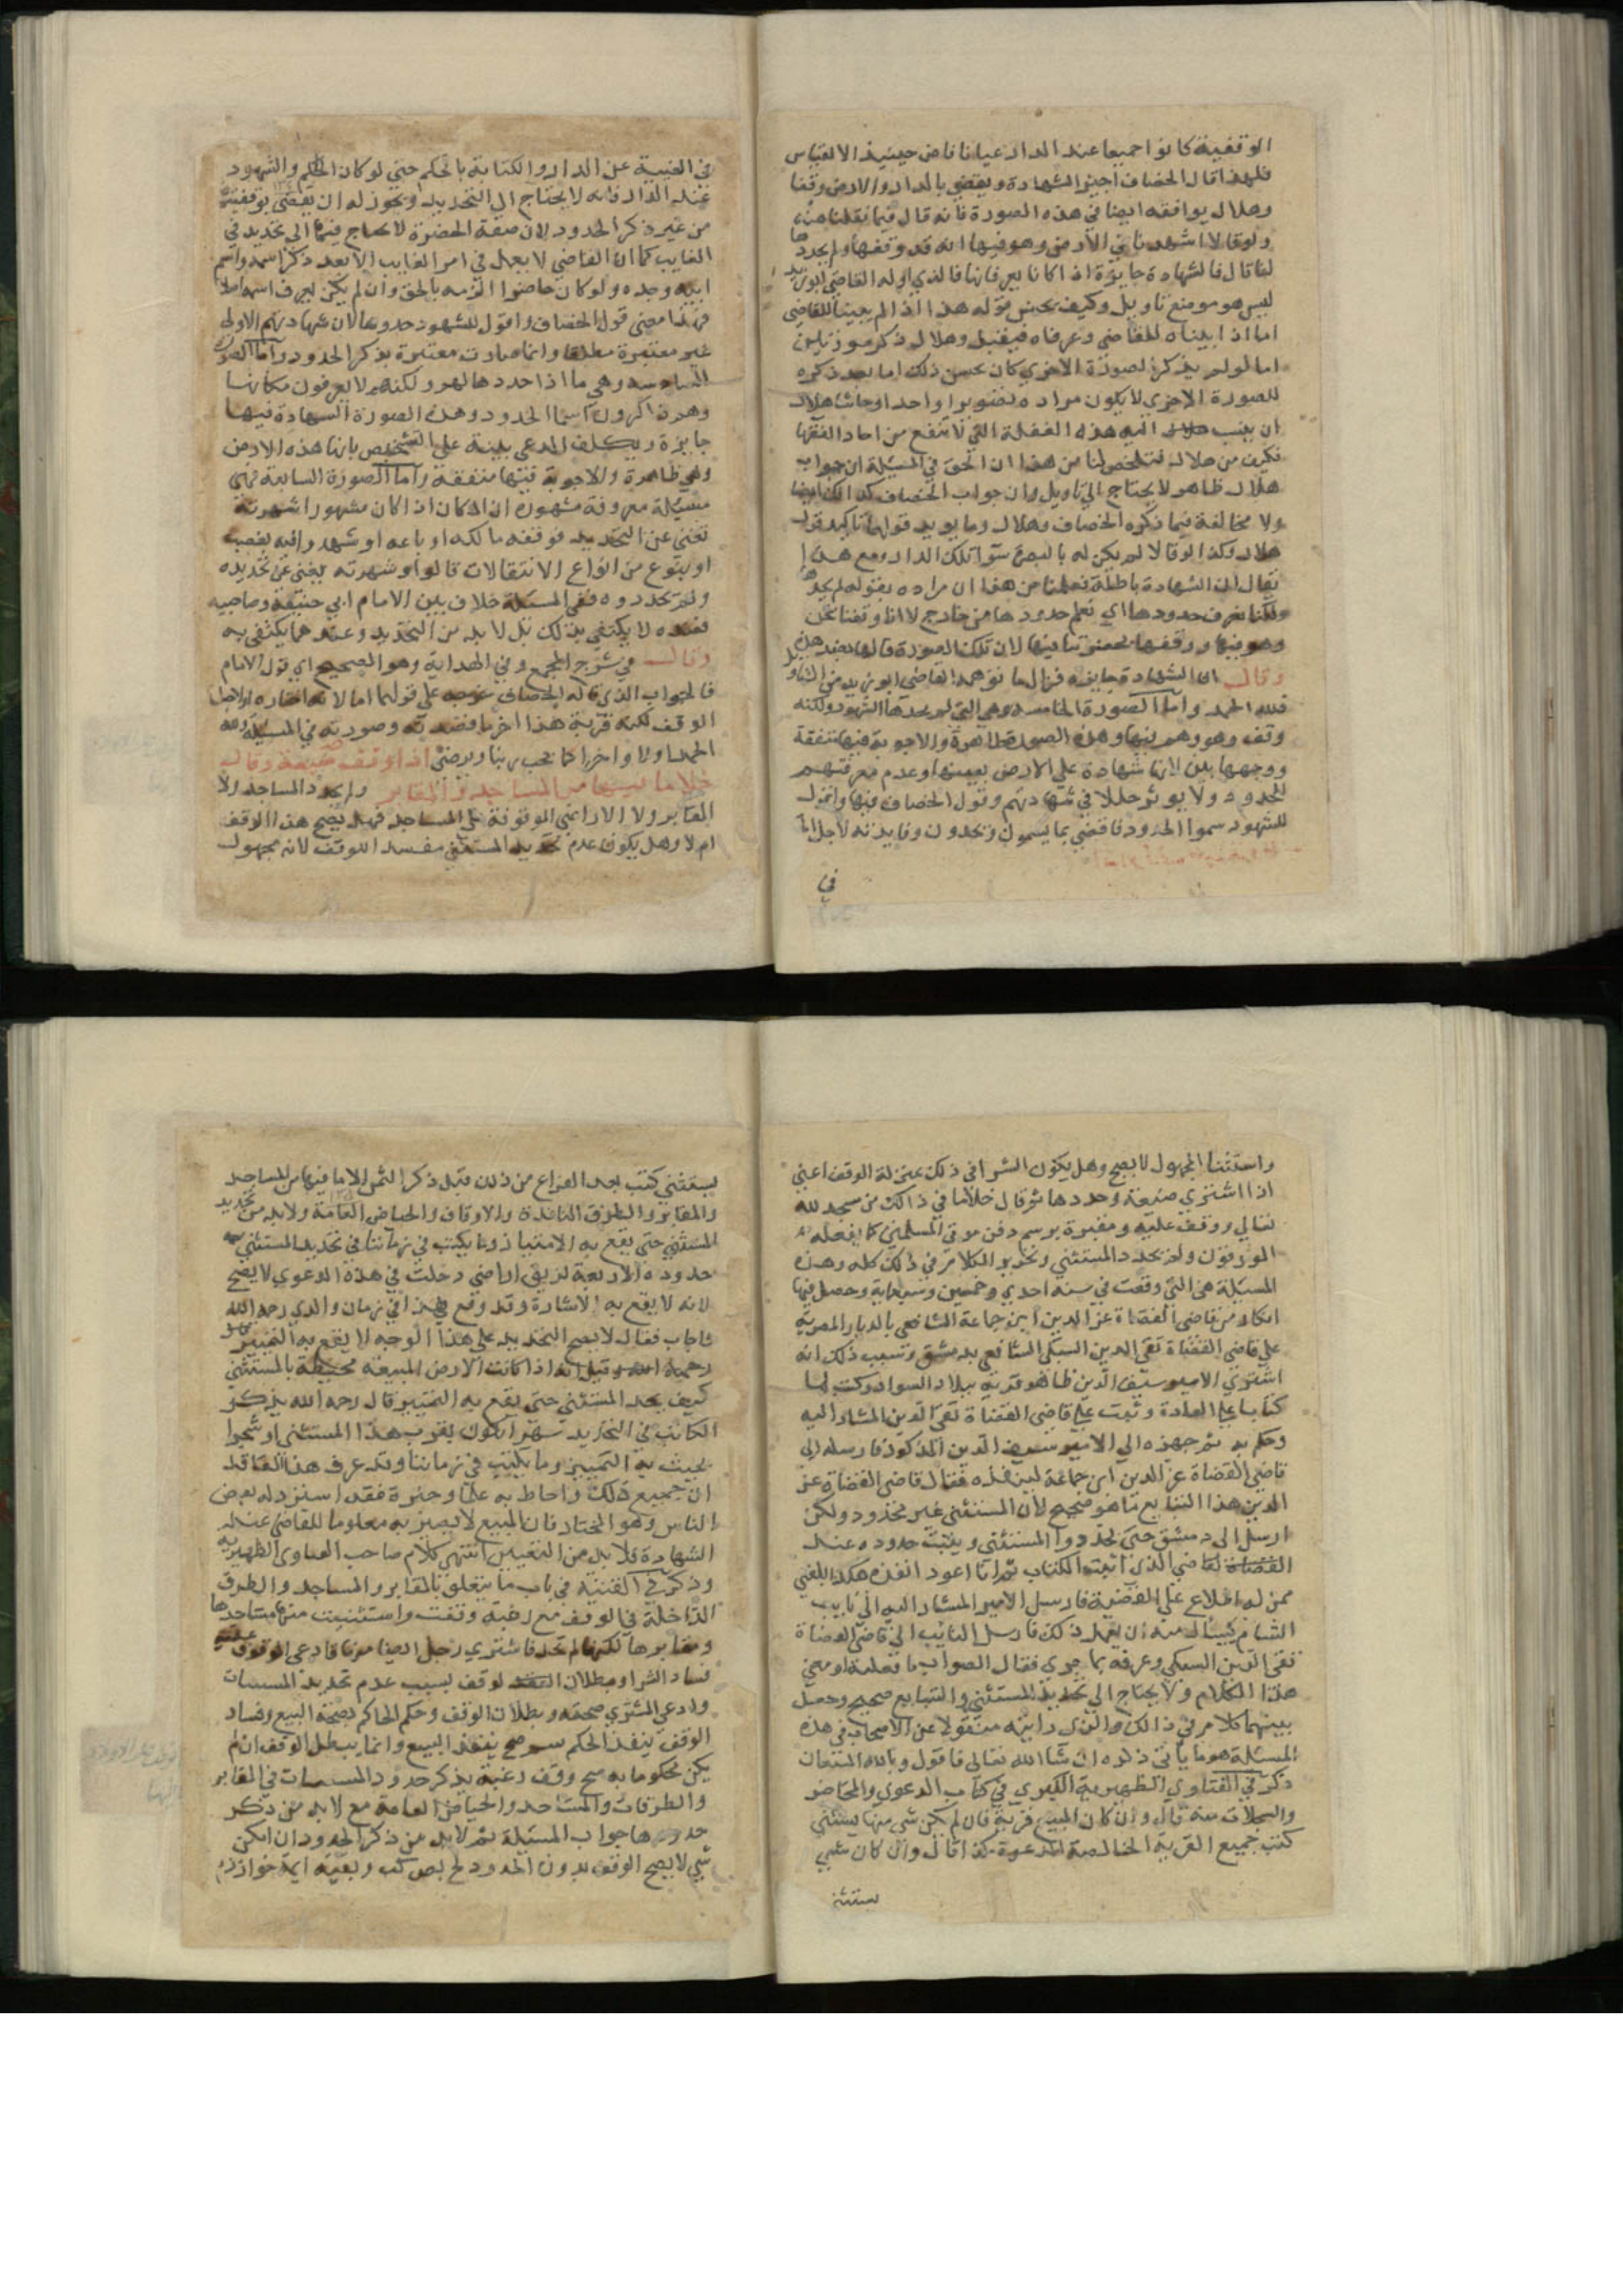 الوقفية كانوا جميعا عند الدار عيانا فاض حينيذ الالتباس
فلهذا قال الخصاف اجيز الشهادة ويقضي بالدار والارض وقفا
وهلال يوافقه ايضا في هذه الصورة فانه قال فيما نقلنا عنه
ولو قالا اشهدنا في الارض وهو فيها انه قد وقفها ولم يحددها
لنا قال فالشهادة جايزة اذا كانا يعرفانها فالذي اوله القاضي ابو زيد
ليس هو موضع تاويل وكيف يحسن قوله هذا اذا لم يبينا للقاضي
اما اذا بيناه للقاضي وعرفاه فيقبل وهلال ذكر صورتين
اما لو لم يذكر الصورة الاخري كان يحسن ذلك اما بعد ذكره
للصورة الاخري لا يكون مراده تصويرا واحدا وحاشا هلال
ان ينسب اليه هذه الغفلة التي لا تقع من احاد الفقها
فكيف من هلال فتلخص لنا من هذا ان الحق في المسئلة ان جواب
هلال ظاهر لا يحتاج الي تاويل وان جواب الخصاف كذلك ايضا
ولا مخالفة فيما ذكره الخصاف وهلال وما يويد قولنا تاكيد قول
هلال وكذا لو قالا لم يكن له بالبصرة سوا تلك الدار ومع هذا
يقال ان الشهادة باطلة فعلمنا من هذا ان مراده بقوله لم يحدها
ولكنا نعرف حدودها اي نعلم حدودها من خارج لا انا وقفنا نحن
وهو فيها ووقفها بحضرتنا فيها لان تلك الصورة قالها بعد هذه
وقال ان الشهادة جايزة فزال ما توهمه القاضي ابو زيد من التاويل
فلله الحمد واما الصورة الخامسة وهي التي لم يحدها الشهود ولكنه
وقف وهو وهم فيها وهذه الصورة ظاهرة والاجوبة فيها متفقة
ووجهها بين لانها شهادة علي الارض بعينها وعدم معرفتهم
الحدود ولا يوثر خللا في شهادتهم وقول الخصاف فيها واقول
للشهود سموا الحدود فاقضي بما يسمون ويحدون وفايدته لاجل
في
في الغيبة عن الدار والكتابة بالحكم حتي لو كان الحاكم والشهود
عند الدار فانه لا يحتاج الي التحديد ويجوز له ان يقضي بوقفيته
من غير ذكر الحدود لان صفة الحضرة لا يحتاج فيها الي تحديد في
الغايب كما ان القاضي لا يعمل في امر الغايب الا بعد ذكر اسمه واسم
ابيه وجده ولو كان حاضرا الزمه بالحق وان لم يكن يعرف اسمه اصلا
فهذا معني قول الخصاف واقول للشهود حدوها لان شهادتهم الاولي
غير معتبرة مطلقا وانما صارت معتبرة بذكر الحدود واما الصورة
السادسة وهي ما اذا حددها لهم ولكنهم لا يعرفون مكانها
وهم ذاكرون اسما الحدود وهذه الصورة الشهادة فيها
جايزة ويكلف المدعي ببينة علي الشخص بانها هذه الارض
وهي ظاهرة والاجوبة فيها متفقة واما الصورة السابعة فهي
مسئلة معروفة مشهورة ان المكان اذا كان مشهورا شهرته
تغني عن التحديد فوقفه مالكه او باعه او شهد وافيه بغصب
او بنوع من انواع الانتقالات قالوا وشهرته يغني عن تحديده
ولم يحددوه ففي المسئلة خلاف بين الامام ابي حنيفة وصاحبيه
فعنده لا يكتفي بذلك بل لا بد من التحديد وعندهما يكتفي به
وقال في شرح المجمع وفي الهداية وهو الصحيح اي قول الامام
فالجواب الذي قاله الخصاف خرجه علي قولهما اما لانه اختاره او لاجل
الوقف لكنه قربة هذا اخر ما قصدته وصورته في المسئلة ولله
الحمد اولا واخرا كما يحب ربنا ويرضي اذا وقف ضيعة وقال
خلا ما فيها من المساجد والمقابر ولم يحدد المساجد ولا
المقابر ولا الاراضي الموقوفة علي المساجد فهل يصح هذا الوقف
ام لا وهل يكون عدم تحديد المستثني مفسد اللوقف لانه مجهول
واستثنا المجهول لا يصح وهل يكون الشرا في ذلك بمنزلة الوقف اعني
اذا اشتري ضيعة وحددها ثم قال خلا ما في ذلك من مسجد لله
تعالي ووقف عليه ومقبرة برسم دفن موتي المسلمين كما يفعله
المورقون ولم يحدد المستثني وتحرير الكلام في ذلك كله وهذه
المسئلة هي التي وقعت في سنة احدي وخمسين وسبعماية وحصل فيها
انكار من قاضي القضاة عز الدين ابن جماعة الشافعي بالديار المصرية
علي قاضي القضاة تقي الدين السبكي الشافعي بدمشق وسبب ذلك انه
اشتري الامير سيف الدين طاهو قرية ببلاد السواد وكتب لها
كتابا علي العادة وثبت علي قاضي القضاة تقي الدين المشار اليه
وحكم به ثم جهزه الي الامير سيف الدين المذكور فارسله الي
قاضي القضاة عز الدين ابن جماعة لينفذه فقال قاضي القضاة عز
الدين هذا التبايع ما هو صحيح لان المستثني غير محدود ولكن
ارسل الي دمشق حتي يحددوا المستثني ويثبت حدوده عند
القاضي الذي اثبت الكتاب ثم انا اعود انفذه هكذا بلغني
ممن له اطلاع علي القضية فارسل الامير المشار اليه الي نايب
الشام يسأله منه ان يعمل ذلك فارسل النايب الي قاضي القضاة
تقي الدين السبكي وعرفه بما جري فقال الصواب ما فعلته او معني
هذا الكلام ولا يحتاج الي تحديد المستثني والتبايع صحيح وحصل
بينهما كلام في ذلك والذي رايته منقولا عن الاصحاب في هذه
المسئلة هو ما ياتي ذكره ان شا الله تعالي فاقول وبالله المستعان
ذكر في الفتاوي الظهيرية الكبري في كتاب الدعوي والمحاضر
والسجلات منه قال وان كان المبيع قرية فان لم يكن شي منها يستثني
كتب جميع القرية الخالصة المدعوة كذا قال وان كان شي
يستثني
يستثني كتب بعد الفراغ من ذلك قبل ذكر الثمن الا ما فيها من المساجد
والمقابر والطرق النافذة والاوقاف والحياض العامة ولا بد من تحديد
المستثني حتي يقع به الامتياز وما يكتب في زماننا في تحديد المستثني
حدوده الاربعة لزيق اراضي دخلت في هذه الدعوي لا يصح
لانه لا يقع به الاشارة وقد وقع هذا في زمان والدي رحمه الله
فاجاب فقال لا يصح التحديد علي هذا الوجه لا يقع به التمييز
رحمه الله وقيل له اذا كانت الارض المبيعة محيطة بالمستثني
كيف يحد المستثني حتي يقع به التمييز قال رحمه الله يذكر
الكاتب في التحديد نهرا يكون بقرب هذا المستثني او شجرا
بحيث به التمييز وما يكتب في زماننا وقد عرف هذا العاقد
ان جميع ذلك واحاط به علما وخبرة فقد استرذله بعض
الناس وهو المختار فان المبيع لا يصير به معلوما للقاضي عند
الشهادة فلا بد من التعيين انتهي كلام صاحب الفتاوي الظهيرية
وذكر في القنية في باب ما يتعلق بالمقابر والمساجد والطرق
الداخلة في الوقف مع رقبه وقفت واستثنيت منها مساجدها
ومقابرها لكنها لم تحد فاشتري رجل ارضا منها فادعي الموقوف عليه
فساد الشرا وبطلان لوقف بسبب عدم تحديد المسبلات
وادعي المشتري صحته وبطلان الوقف وحكم الحاكم بصحة البيع وفساد
الوقف ينفذ الحكم صح ينفذ البيع وانما يبطل الوقف ان لم
يكن محكوما به صح وقف رغبة بذكر حدود المسبلات في المقابر
والطرقات والمساجد والحياض العامة مع لا بد من ذكر
حدودها جواب المسئلة ثم لا بد من ذكر الحدود ان امكن
شي لا يصح الوقف بدون الحدود كب وبقية ايمة خوارزم